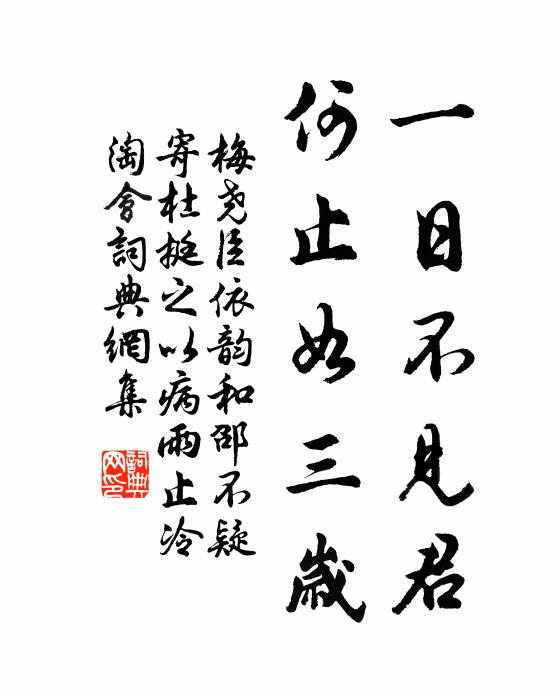 一日不見君
何止如三歲
梅堯臣依韵和邵不疑
寄杜挺之以病雨止冷
淘會詞典網集
詞典网印